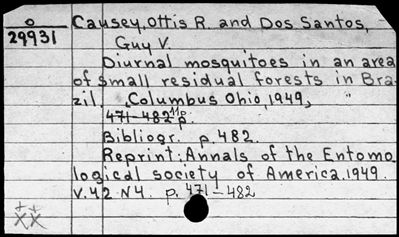 o
29931
Causey, Ottis R. and Dos Santos,
Guy V.
Diurnal mosquitoes in an area
of small residual forests in Bra-
zil. Columbus Ohio, 1949,
471-482 p.
Bibliogr. p. 482.
Reprint: Annals of the Entomo
logical society of America. 1949.
V. 42 N4. p. 471-482
xx